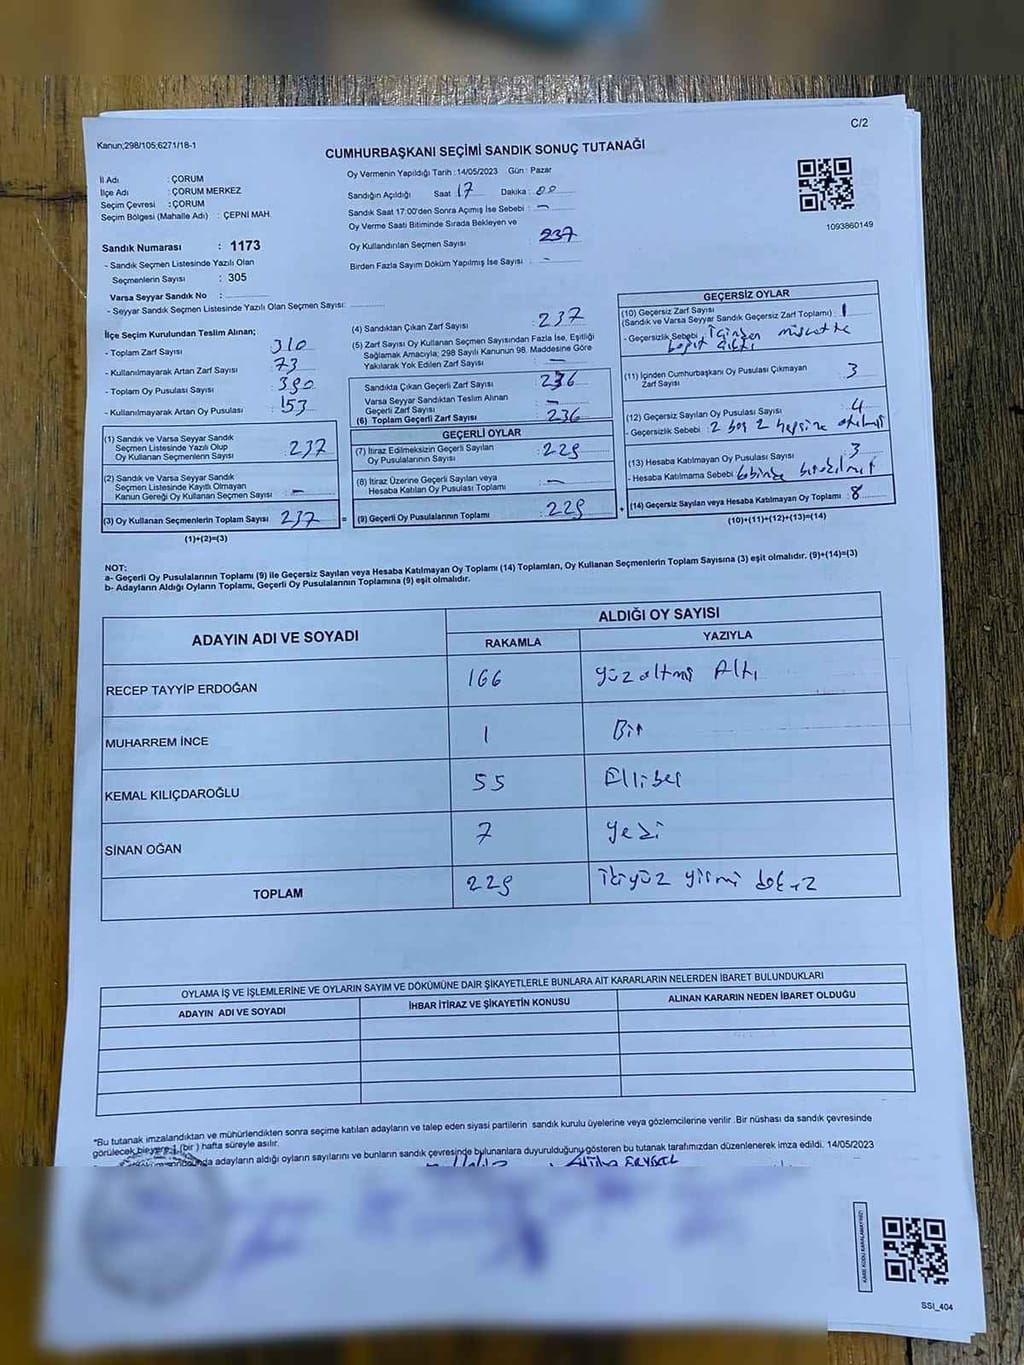 C/2
Kanun;298/105;6271/18-1
CUMHURBAŞKANI SEÇİMİ SANDIK SONUÇ TUTANAĞI
İl Adı : ÇORUM
İlçe Adı : ÇORUM MERKEZ
Seçim Çevresi : ÇORUM
Seçim Bölgesi (Mahalle Adı) : ÇEPNİ MAH.
Sandık Numarası : 1173
- Sandık Seçmen Listesinde Yazılı Olan
Seçmenlerin Sayısı : 305
Varsa Seyyar Sandık No :
- Seyyar Sandık Seçmen Listesinde Yazılı Olan Seçmen Sayısı:
Oy Vermenin Yapıldığı Tarih :14/05/2023 Gün : Pazar
Sandığın Açıldığı Saat 17 Dakika : 00
Sandık Saat 17:00'den Sonra Açımış İse Sebebi : -
Oy Verme Saati Bitiminde Sırada Bekleyen ve
Oy Kullandırılan Seçmen Sayısı : 237
Birden Fazla Sayım Döküm Yapılmış İse Sayısı : -
1093860149
İlçe Seçim Kurulundan Teslim Alınan;
- Toplam Zarf Sayısı : 310
- Kullanılmayarak Artan Zarf Sayısı : 73
- Toplam Oy Pusulası Sayısı : 390
- Kullanılmayarak Artan Oy Pusulası : 153
(1) Sandık ve Varsa Seyyar Sandık
Seçmen Listesinde Yazılı Olup
Oy Kullanan Seçmenlerin Sayısı : 237
(2) Sandık ve Varsa Seyyar Sandık
Seçmen Listesinde Kayıtlı Olmayan
Kanun Gereği Oy Kullanan Seçmen Sayısı : -
(3) Oy Kullanan Seçmenlerin Toplam Sayısı 237 =
(1)+(2)=(3)
(4) Sandıktan Çıkan Zarf Sayısı : 237
(5) Zarf Sayısı Oy Kullanan Seçmen Sayısından Fazla İse, Eşitliği
Sağlamak Amacıyla; 298 Sayılı Kanunun 98. Maddesine Göre
Yakılarak Yok Edilen Zarf Sayısı : -
Sandıkta Çıkan Geçerli Zarf Sayısı : 236
Varsa Seyyar Sandıktan Teslim Alınan
Geçerli Zarf Sayısı : -
(6) Toplam Geçerli Zarf Sayısı : 236
GEÇERLİ OYLAR
(7) İtiraz Edilmeksizin Geçerli Sayılan
Oy Pusulalarının Sayısı : 229
(8) İtiraz Üzerine Geçerli Sayılan veya
Hesaba Katılan Oy Pusulası Toplamı : -
(9) Geçerli Oy Pusulalarının Toplamı : 229 +
GEÇERSİZ OYLAR
(10) Geçersiz Zarf Sayısı
(Sandık ve Varsa Seyyar Sandık Geçersiz Zarf Toplamı) : 1
- Geçersizlik Sebebi
(11) İçinden Cumhurbaşkanı Oy Pusulası Çıkmayan
Zarf Sayısı : 3
(12) Geçersiz Sayılan Oy Pusulası Sayısı : 4
- Geçersizlik Sebebi : 2 boş 2 hepsine
(13) Hesaba Katılmayan Oy Pusulası Sayısı : 3
- Hesaba Katılmama Sebebi
(14) Geçersiz Sayılan veya Hesaba Katılmayan Oy Toplamı : 8
(10)+(11)+(12)+(13)=(14)
NOT:
a- Geçerli Oy Pusulalarının Toplamı (9) ile Geçersiz Sayılan veya Hesaba Katılmayan Oy Toplamı (14) Toplamları, Oy Kullanan Seçmenlerin Toplam Sayısına (3) eşit olmalıdır. (9)+(14)=(3)
b- Adayların Aldığı Oyların Toplamı, Geçerli Oy Pusulalarının Toplamına (9) eşit olmalıdır.
ADAYIN ADI VE SOYADI ALDIĞI OY SAYISI
RAKAMLA YAZIYLA
RECEP TAYYİP ERDOĞAN 166 Yüz altmış Altı
MUHARREM İNCE 1 Bir
KEMAL KILIÇDAROĞLU 55 Ellibeş
SİNAN OĞAN 7 Yedi
TOPLAM 229 İkiyüz yirmi dokuz
OYLAMA İŞ VE İŞLEMLERİNE VE OYLARIN SAYIM VE DÖKÜMÜNE DAİR ŞİKAYETLERLE BUNLARA AİT KARARLARIN NELERDEN İBARET BULUNDUKLARI
ADAYIN ADI VE SOYADI İHBAR İTİRAZ VE ŞİKAYETİN KONUSU ALINAN KARARIN NEDEN İBARET OLDUĞU
*Bu tutanak imzalandıktan ve mühürlendikten sonra seçime katılan adayların ve talep eden siyasi partilerin sandık kurulu üyelerine veya gözlemcilerine verilir .Bir nüshası da sandık çevresinde
görülecek bir yere 1 (bir ) hafta süreyle asılır.
adayların aldığı oyların sayılarını ve bunların sandık çevresinde bulunanlara duyurulduğunu gösteren bu tutanak tarafımızdan düzenlenerek imza edildi. 14/05/2023
KARE KODU KARALAMAYINIZ!
SSI_404